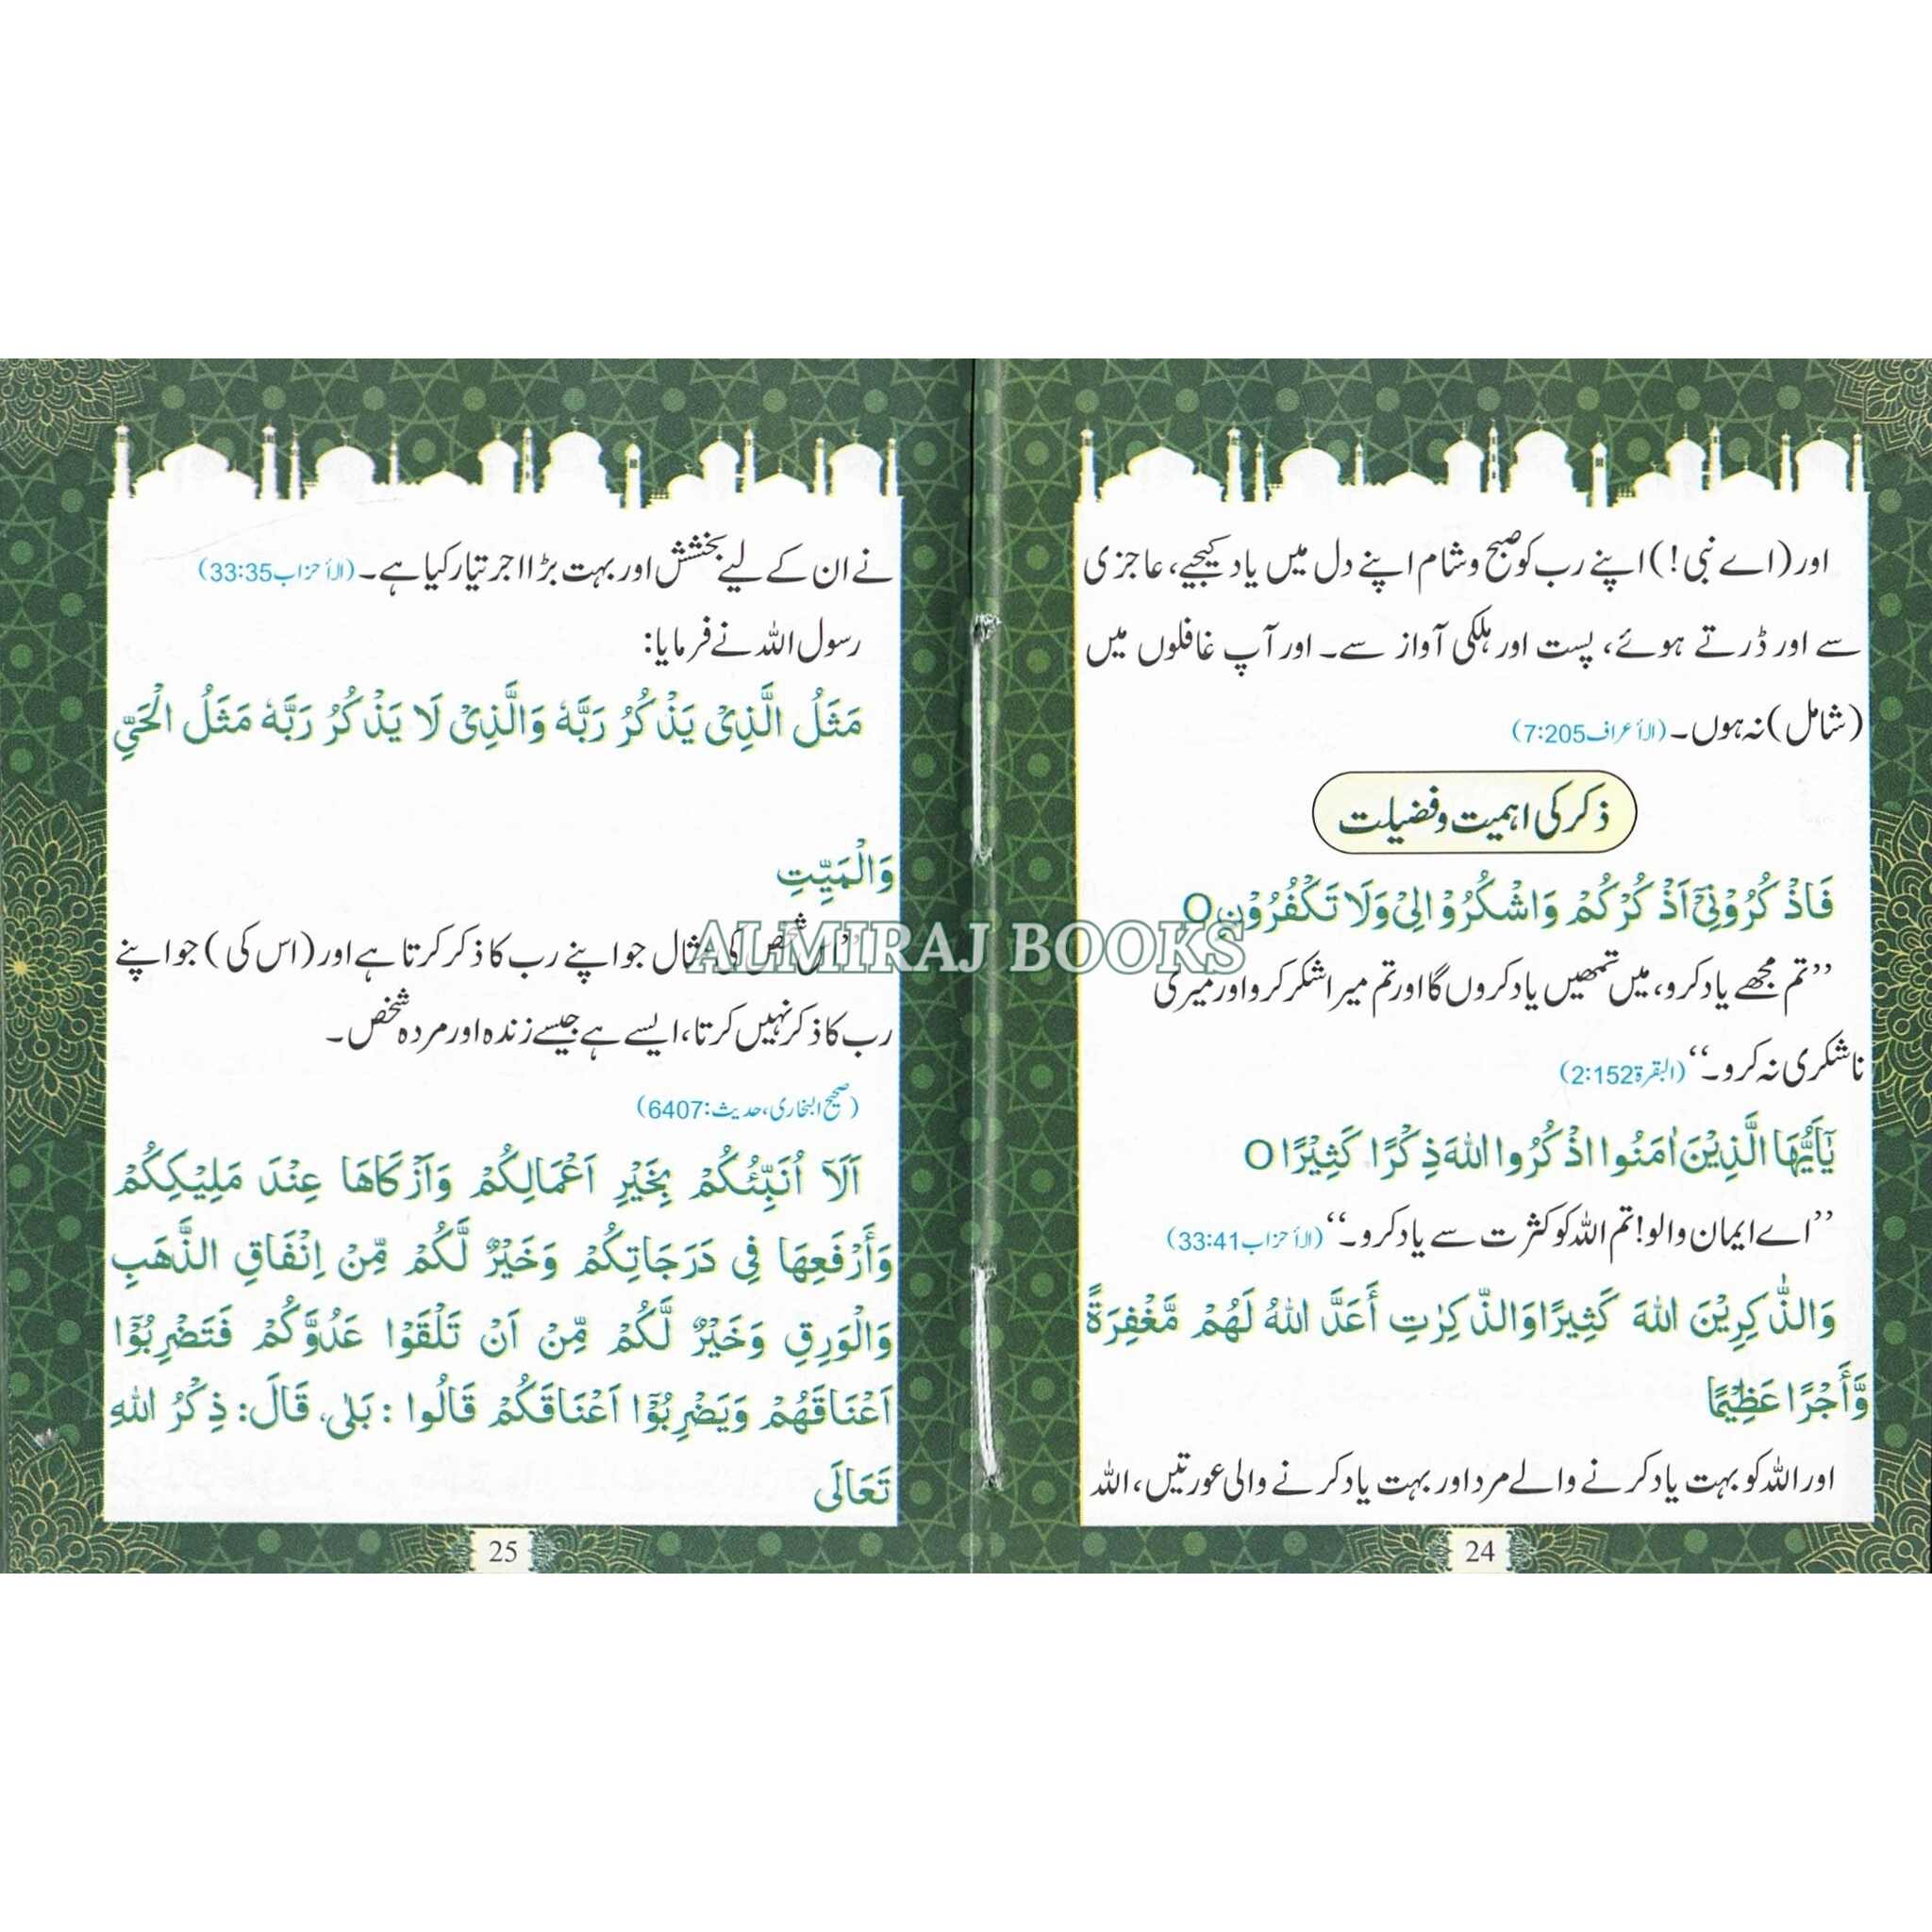 اور (اے نبی!) اپنے رب کو صبح و شام اپنے دل میں یاد کیجیے، عاجزی
سے اور ڈرتے ہوئے، پست اور ہلکی آواز سے۔ اور آپ غافلوں میں
(شامل) نہ ہوں۔ (الأعراف 7:205)
ذکر کی اہمیت و فضیلت
فَاذْكُرُوْنِيْٓ اَذْكُرْكُمْ وَاشْكُرُوْا لِيْ وَلَا تَكْفُرُوْنِ O
’’تم مجھے یاد کرو، میں تمھیں یاد کروں گا اور تم میرا شکر کرو اور میری
ناشکری نہ کرو۔‘‘ (البقرة 2:152)
يٰٓاَيُّهَا الَّذِيْنَ اٰمَنُوا اذْكُرُوا اللّٰهَ ذِكْرًا كَثِيْرًا O
’’اے ایمان والو! تم اللہ کو کثرت سے یاد کرو۔‘‘ (الأحزاب 33:41)
وَالذّٰكِرِيْنَ اللّٰهَ كَثِيْرًا وَالذّٰكِرٰتِ أَعَدَّ اللّٰهُ لَهُمْ مَّغْفِرَةً
وَّأَجْرًا عَظِيْمًا
اور اللہ کو بہت یاد کرنے والے مرد اور بہت یاد کرنے والی عورتیں، اللہ
24
نے ان کے لیے بخشش اور بہت بڑا اجر تیار کیا ہے۔ (الأحزاب 33:35)
رسول اللہ نے فرمایا:
مَثَلُ الَّذِيْ يَذْكُرُ رَبَّهٗ وَالَّذِيْ لَا يَذْكُرُ رَبَّهٗ مَثَلُ الْحَيِّ
وَالْمَيِّتِ
’’اس شخص کی مثال جو اپنے رب کا ذکر کرتا ہے اور (اس کی) جو اپنے
رب کا ذکر نہیں کرتا، ایسے ہے جیسے زندہ اور مردہ شخص۔
(صحیح البخاری، حدیث: 6407)
اَلَآ اُنَبِّئُكُمْ بِخَيْرِ اَعْمَالِكُمْ وَاَزْكَاهَا عِنْدَ مَلِيْكِكُمْ
وَأَرْفَعِهَا فِي دَرَجَاتِكُمْ وَخَيْرٌ لَّكُمْ مِّنْ اِنْفَاقِ الذَّهَبِ
وَالْوَرِقِ وَخَيْرٌ لَّكُمْ مِّنْ اَنْ تَلْقَوْا عَدُوَّكُمْ فَتَضْرِبُوْٓا
اَعْنَاقَهُمْ وَيَضْرِبُوْٓا اَعْنَاقَكُمْ قَالُوا : بَلٰى، قَالَ: ذِكْرُ اللّٰهِ
تَعَالَى
25
ALMIRAJ BOOKS